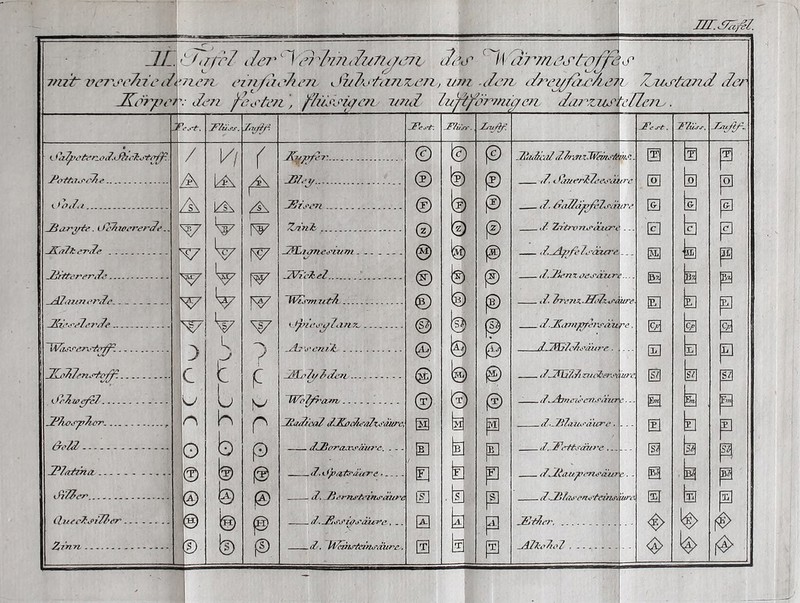 III. Tafel.
II. Tafel der Verbindungen des Wärmestoffes
mit verschiedenen einfachen Substanzen, um den dreyfachen Zustand der
Körper: den festen, flüssigen und luftförmigen darzustellen.
Fest. Flüss. Luftf. Fest. Flüss. Luftf. Fest. Flüss. Luftf.
Salpeter. od. Stickstoff. Kupfer C C C Radical d. brenz. Weinsteins. T T T
Pottasche P P P Bley P P P d. Sauerkleesäure O O O
Soda S S S Eisen F F F d. Galläpfelsäure G G G
Baryte. Schwererde B B B Zink Z Z Z d. Zitronsäure C C C
Kalkerde C C C Magnesium M M M d. Apfelsäure M M M
Bittererde M M M Nickel N N N d. Benzoesäure Bz Bz Bz
Alaunerde A A A Wismuth B B B d. brenz. Holzsäure
Kieselerde S S S Spiesglanz Sb Sb Sb d. Kampfersäure Cp Cp Cp
Wasserstoff Arsenik As As As d. Milchsäure
Kohlenstoff Molybden M M M d. Milchzuckersäure Sl Sl Sl
Schwefel Wolfram T T T d. Ameisensäure Fm Fm Fm
Phosphor Radical d. Kochsalzsäure M M M d. Blausäure P P P
Gold d. Boraxsäure B B B d. Fettsäure Sb Sb Sb
Platina P P P d. Spatsäure F F F d. Raupensäure
Silber A A A d. Bernsteinsäure S S S d. Blasensteinsäure
Quecksilber H H H d. Essigsäure A A A Ether E E E
Zinn S S S d. Weinsteinsäure T T T Alkohol A A A